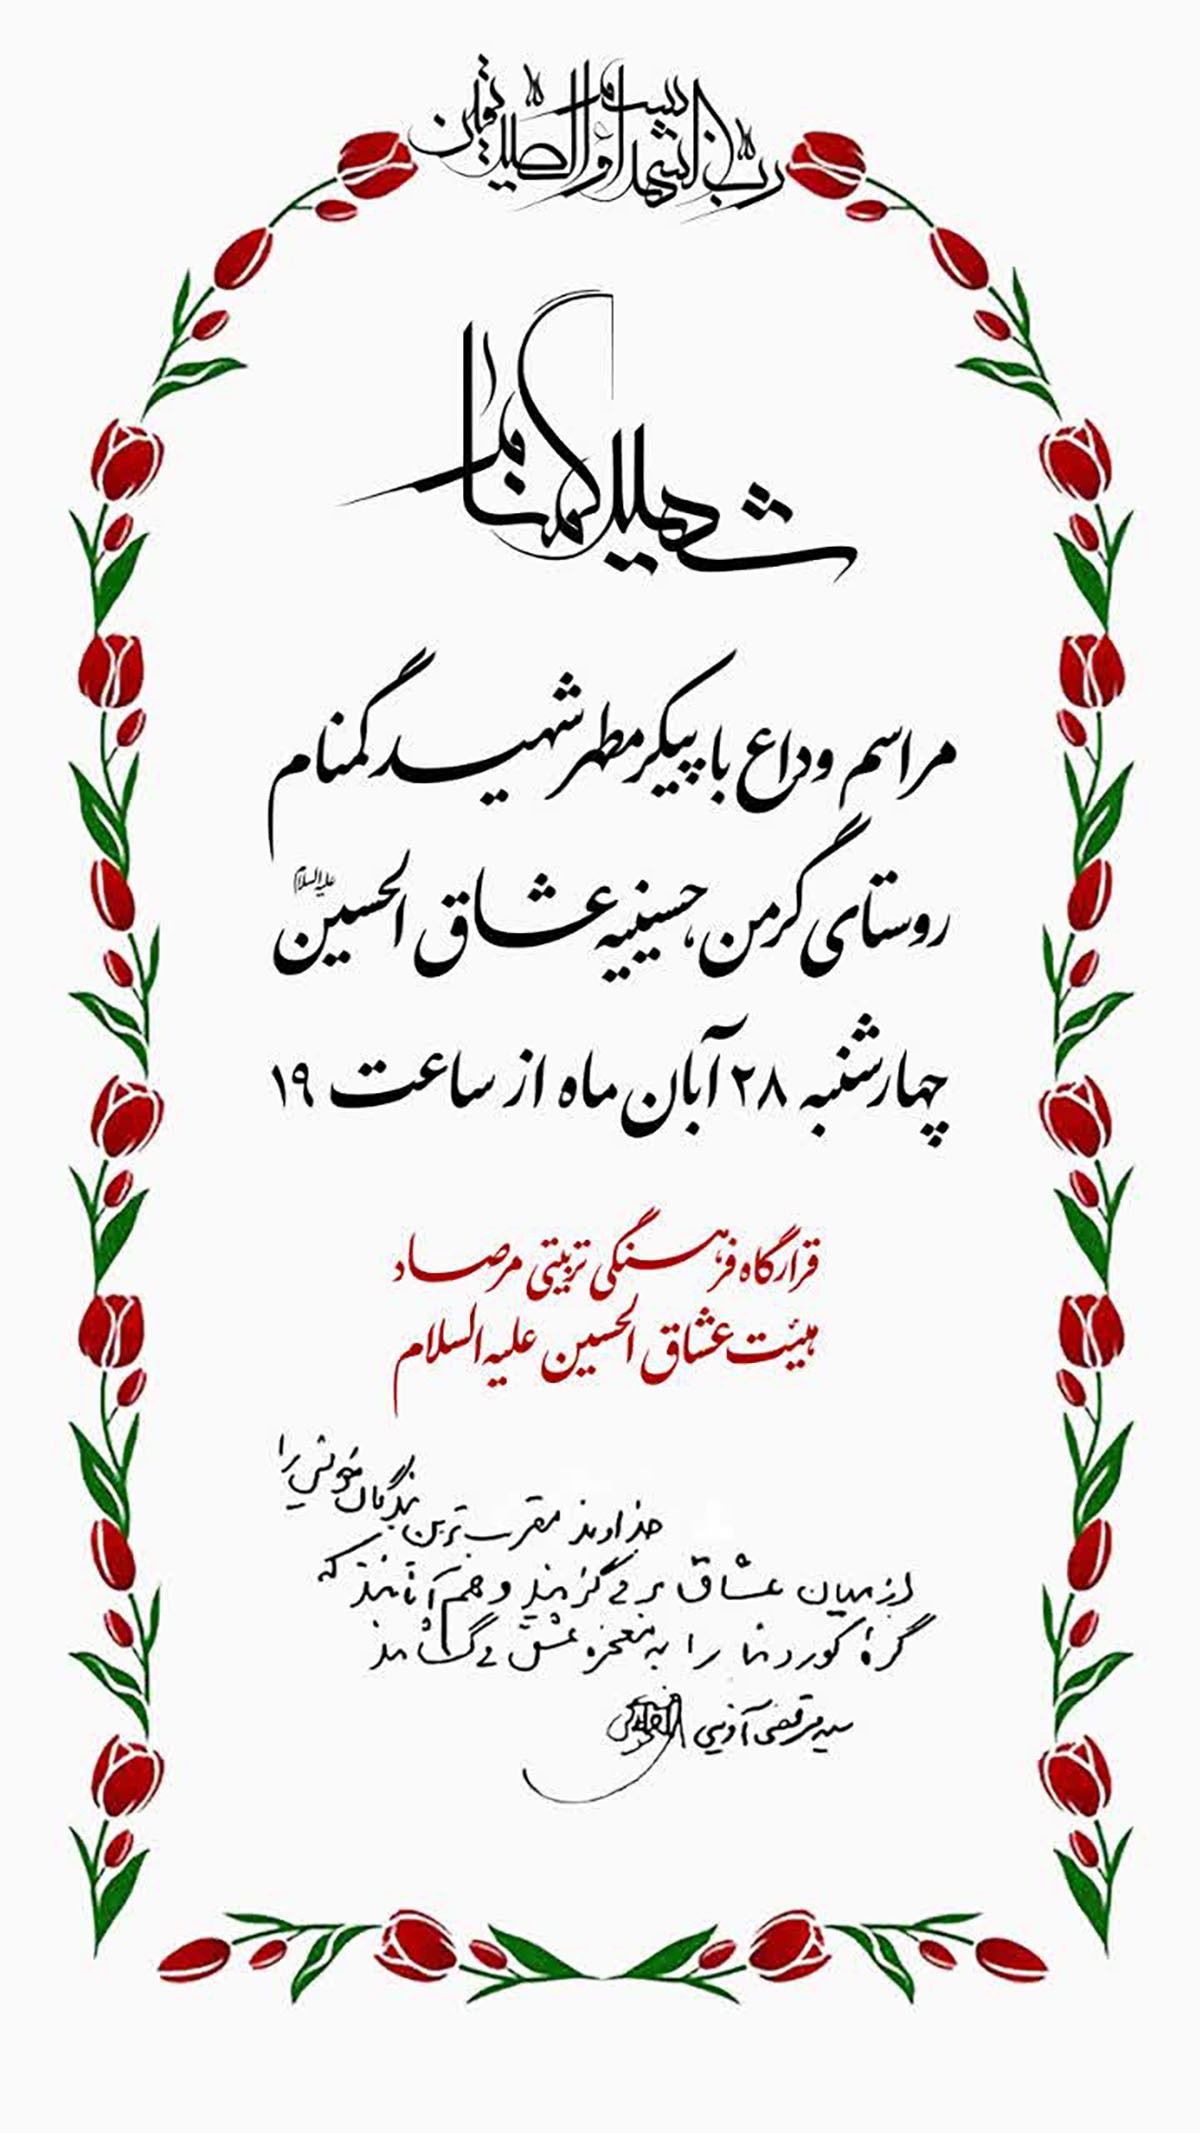 بسم رب الشهداء و الصدیقین
شهید گمنام
مراسم وداع با پیکر مطهر شهید گمنام
روستای گرمن، حسینیه عشاق الحسین علیه السلام
چهارشنبه ۲۸ آبان ماه از ساعت ۱۹
قرارگاه فرهنگی تربیتی مرصاد
هیئت عشاق الحسین علیه السلام
خداوند مقرب ترین بندگان خویش را
از میان عشاق بر می گزیند و هم آنانند که
گره کور دنیا را به معجزه عشق می گشایند
سید مرتضی آوینی